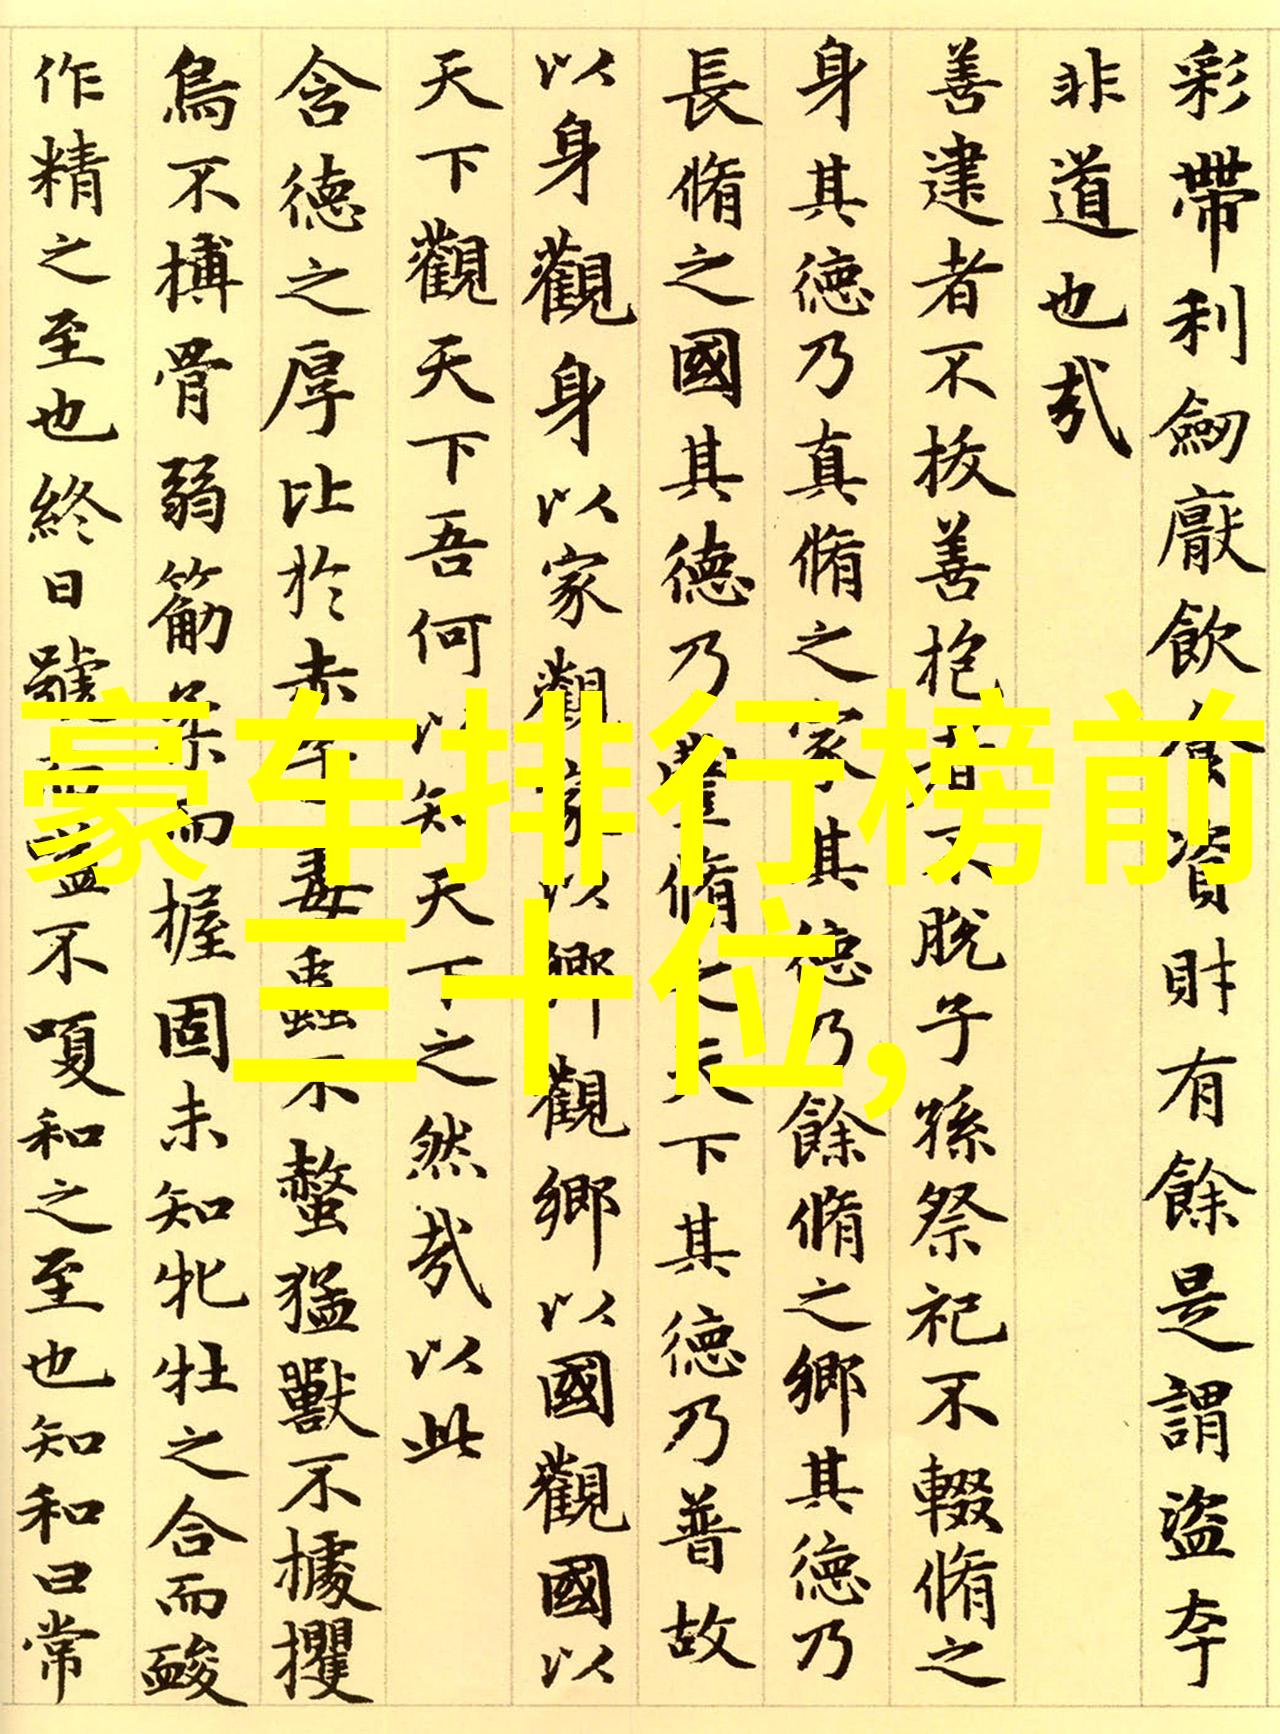 彩帶利劒厭飲食資財有餘是謂盜夸
非道也㢤
善建者不拔善抱者不脫子孫祭祀不輟脩之
身其德乃真脩之家其德乃餘脩之鄉其德乃
長脩之國其德乃豐脩之天下其德乃普故
以身觀身以家觀家以鄉觀鄉以國觀國以
天下觀天下吾何以知天下之然㢤以此
含德之厚比於赤子毒蟲不螫猛獸不據攫
鳥不搏骨弱筋柔而握固未知牝牡之合而酸
作精之至也終日號而嗌不嗄和之至也知和曰常
豪车排行榜前
三十位,